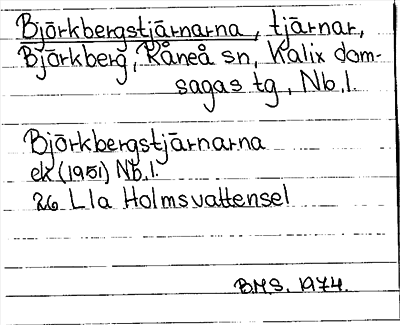 Björkbergstjärnarna, tjärnar,
Björkberg, Råneå sn, Kalix dom-
sagas tg, Nb.l.
Björkbergstjärnarna
ek (1951) Nb.l.
26 Lla Holmsvattensel
B.M.S. 1974.